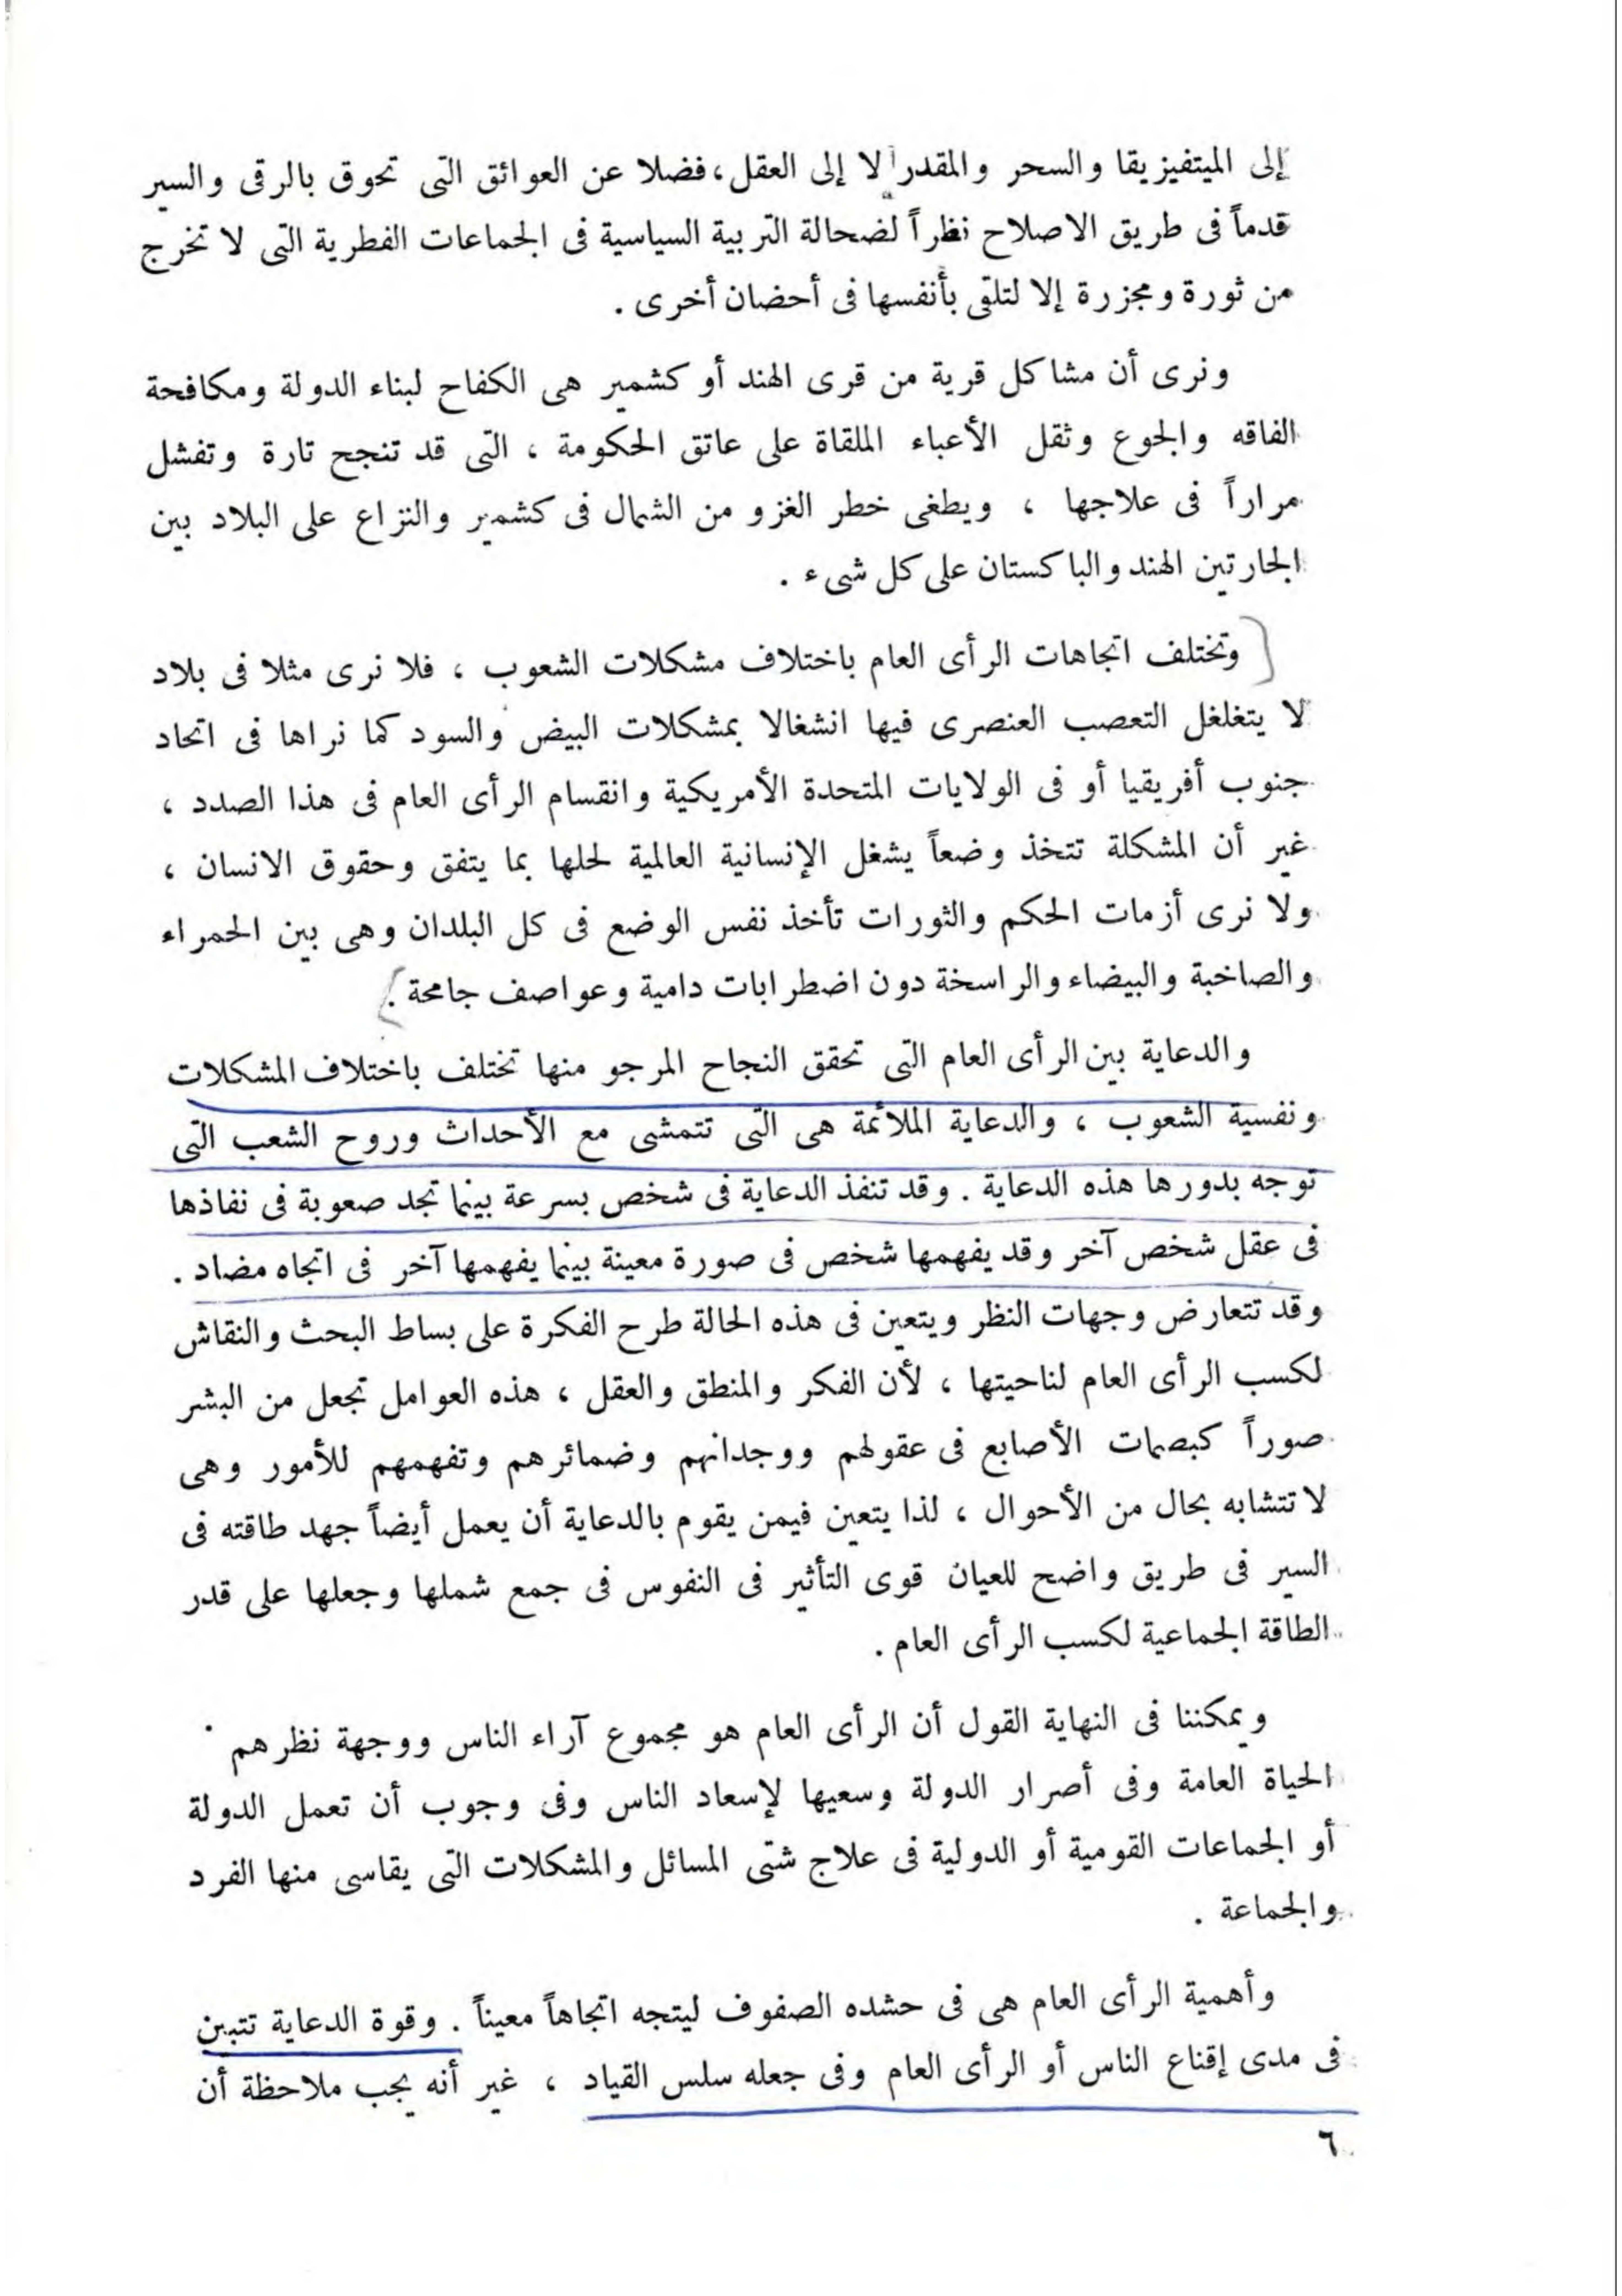 إلى الميتفيزيقا والسحر والمقدر لا إلى العقل، فضلا عن العوائق التى تحوق بالرقى والسير
قدماً فى طريق الاصلاح نظراً لضحالة التربية السياسية فى الجماعات الفطرية التى لا تخرج
من ثورة ومجزرة إلا لتلقى بأنفسها فى أحضان أخرى .
ونرى أن مشاكل قرية من قرى الهند أو كشمير هى الكفاح لبناء الدولة ومكافحة
الفاقه والجوع وثقل الأعباء الملقاة على عاتق الحكومة ، التى قد تنجح تارة وتفشل
مراراً فى علاجها ، ويطغى خطر الغزو من الشمال فى كشمير والنزاع على البلاد بين
الجارتين الهند والباكستان على كل شىء .
وتختلف اتجاهات الرأى العام باختلاف مشكلات الشعوب ، فلا نرى مثلا فى بلاد
لا يتغلغل التعصب العنصرى فيها انشغالا بمشكلات البيض والسود كما نراها فى اتحاد
جنوب أفريقيا أو فى الولايات المتحدة الأمريكية وانقسام الرأى العام فى هذا الصدد ،
غير أن المشكلة تتخذ وضعاً يشغل الإنسانية العالمية لحلها بما يتفق وحقوق الانسان ،
ولا نرى أزمات الحكم والثورات تأخذ نفس الوضع فى كل البلدان وهى بين الحمراء
والصاخبة والبيضاء والراسخة دون اضطرابات دامية وعواصف جامحة .
والدعاية بين الرأى العام التى تحقق النجاح المرجو منها تختلف باختلاف المشكلات
ونفسية الشعوب ، والدعاية الملائمة هى التى تتمشى مع الأحداث وروح الشعب التى
توجه بدورها هذه الدعاية . وقد تنفذ الدعاية فى شخص بسرعة بينما تجد صعوبة فى نفاذها
فى عقل شخص آخر وقد يفهمها شخص فى صورة معينة بينما يفهمها آخر فى اتجاه مضاد .
وقد تتعارض وجهات النظر ويتعين فى هذه الحالة طرح الفكرة على بساط البحث والنقاش
لكسب الرأى العام لناحيتها ، لأن الفكر والمنطق والعقل ، هذه العوامل تجعل من البشر
صوراً كبصمات الأصابع فى عقولهم ووجدانهم وضمائرهم وتفهمهم للأمور وهى
لا تتشابه بحال من الأحوال ، لذا يتعين فيمن يقوم بالدعاية أن يعمل أيضاً جهد طاقته فى
السير فى طريق واضح للعيان قوى التأثير فى النفوس فى جمع شملها وجعلها على قدر
الطاقة الجماعية لكسب الرأى العام .
ويمكننا فى النهاية القول أن الرأى العام هو مجموع آراء الناس ووجهة نظرهم
الحياة العامة وفى أصرار الدولة وسعيها لإسعاد الناس وفى وجوب أن تعمل الدولة
أو الجماعات القومية أو الدولية فى علاج شتى المسائل والمشكلات التى يقاسى منها الفرد
والجماعة .
وأهمية الرأى العام هى فى حشده الصفوف ليتجه اتجاهاً معيناً . وقوة الدعاية تتبين
فى مدى إقناع الناس أو الرأى العام وفى جعله سلس القياد ، غير أنه يجب ملاحظة أن
٦